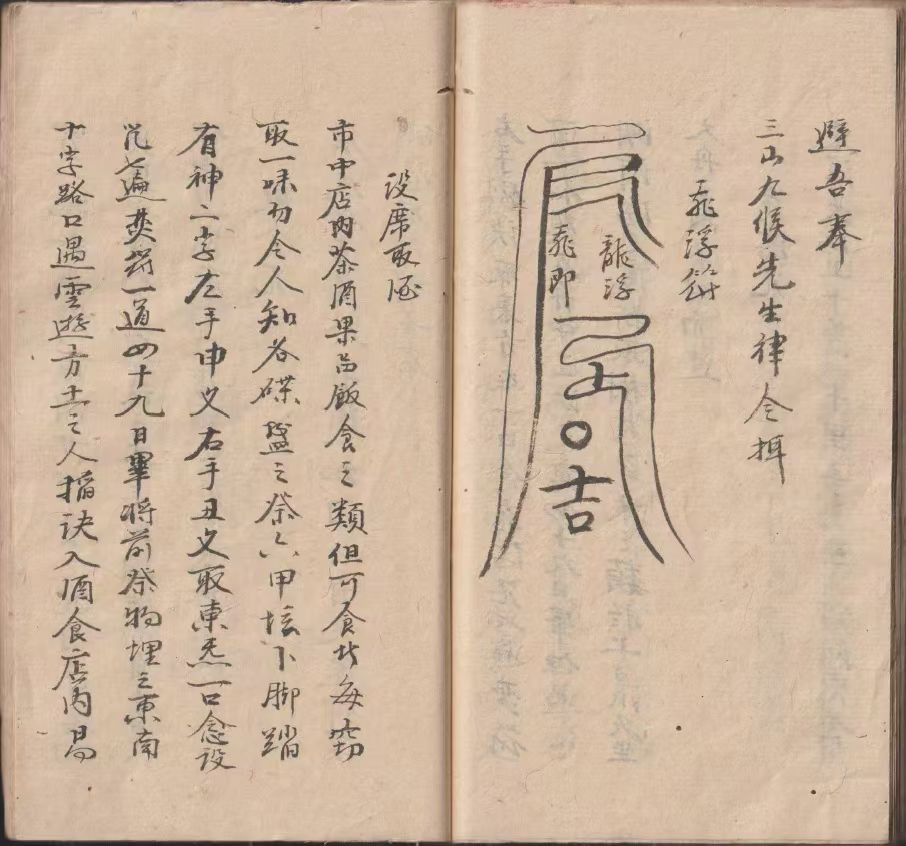 避吾奉
三山九侯先生律令摂
飛浮符
龍浮
飛即
吉
设席取酒
市中店內茶酒果品飯食之類但可食者每窃
取一味勿令人知谷碟盛之祭六甲壇下脚踏
有神二字左手申文右手丑文取東炁一口念设
咒七遍焚符一道四十九日畢将前祭物埋之東南
十字路口遇雲遊方士之人掐诀入酒食店內易